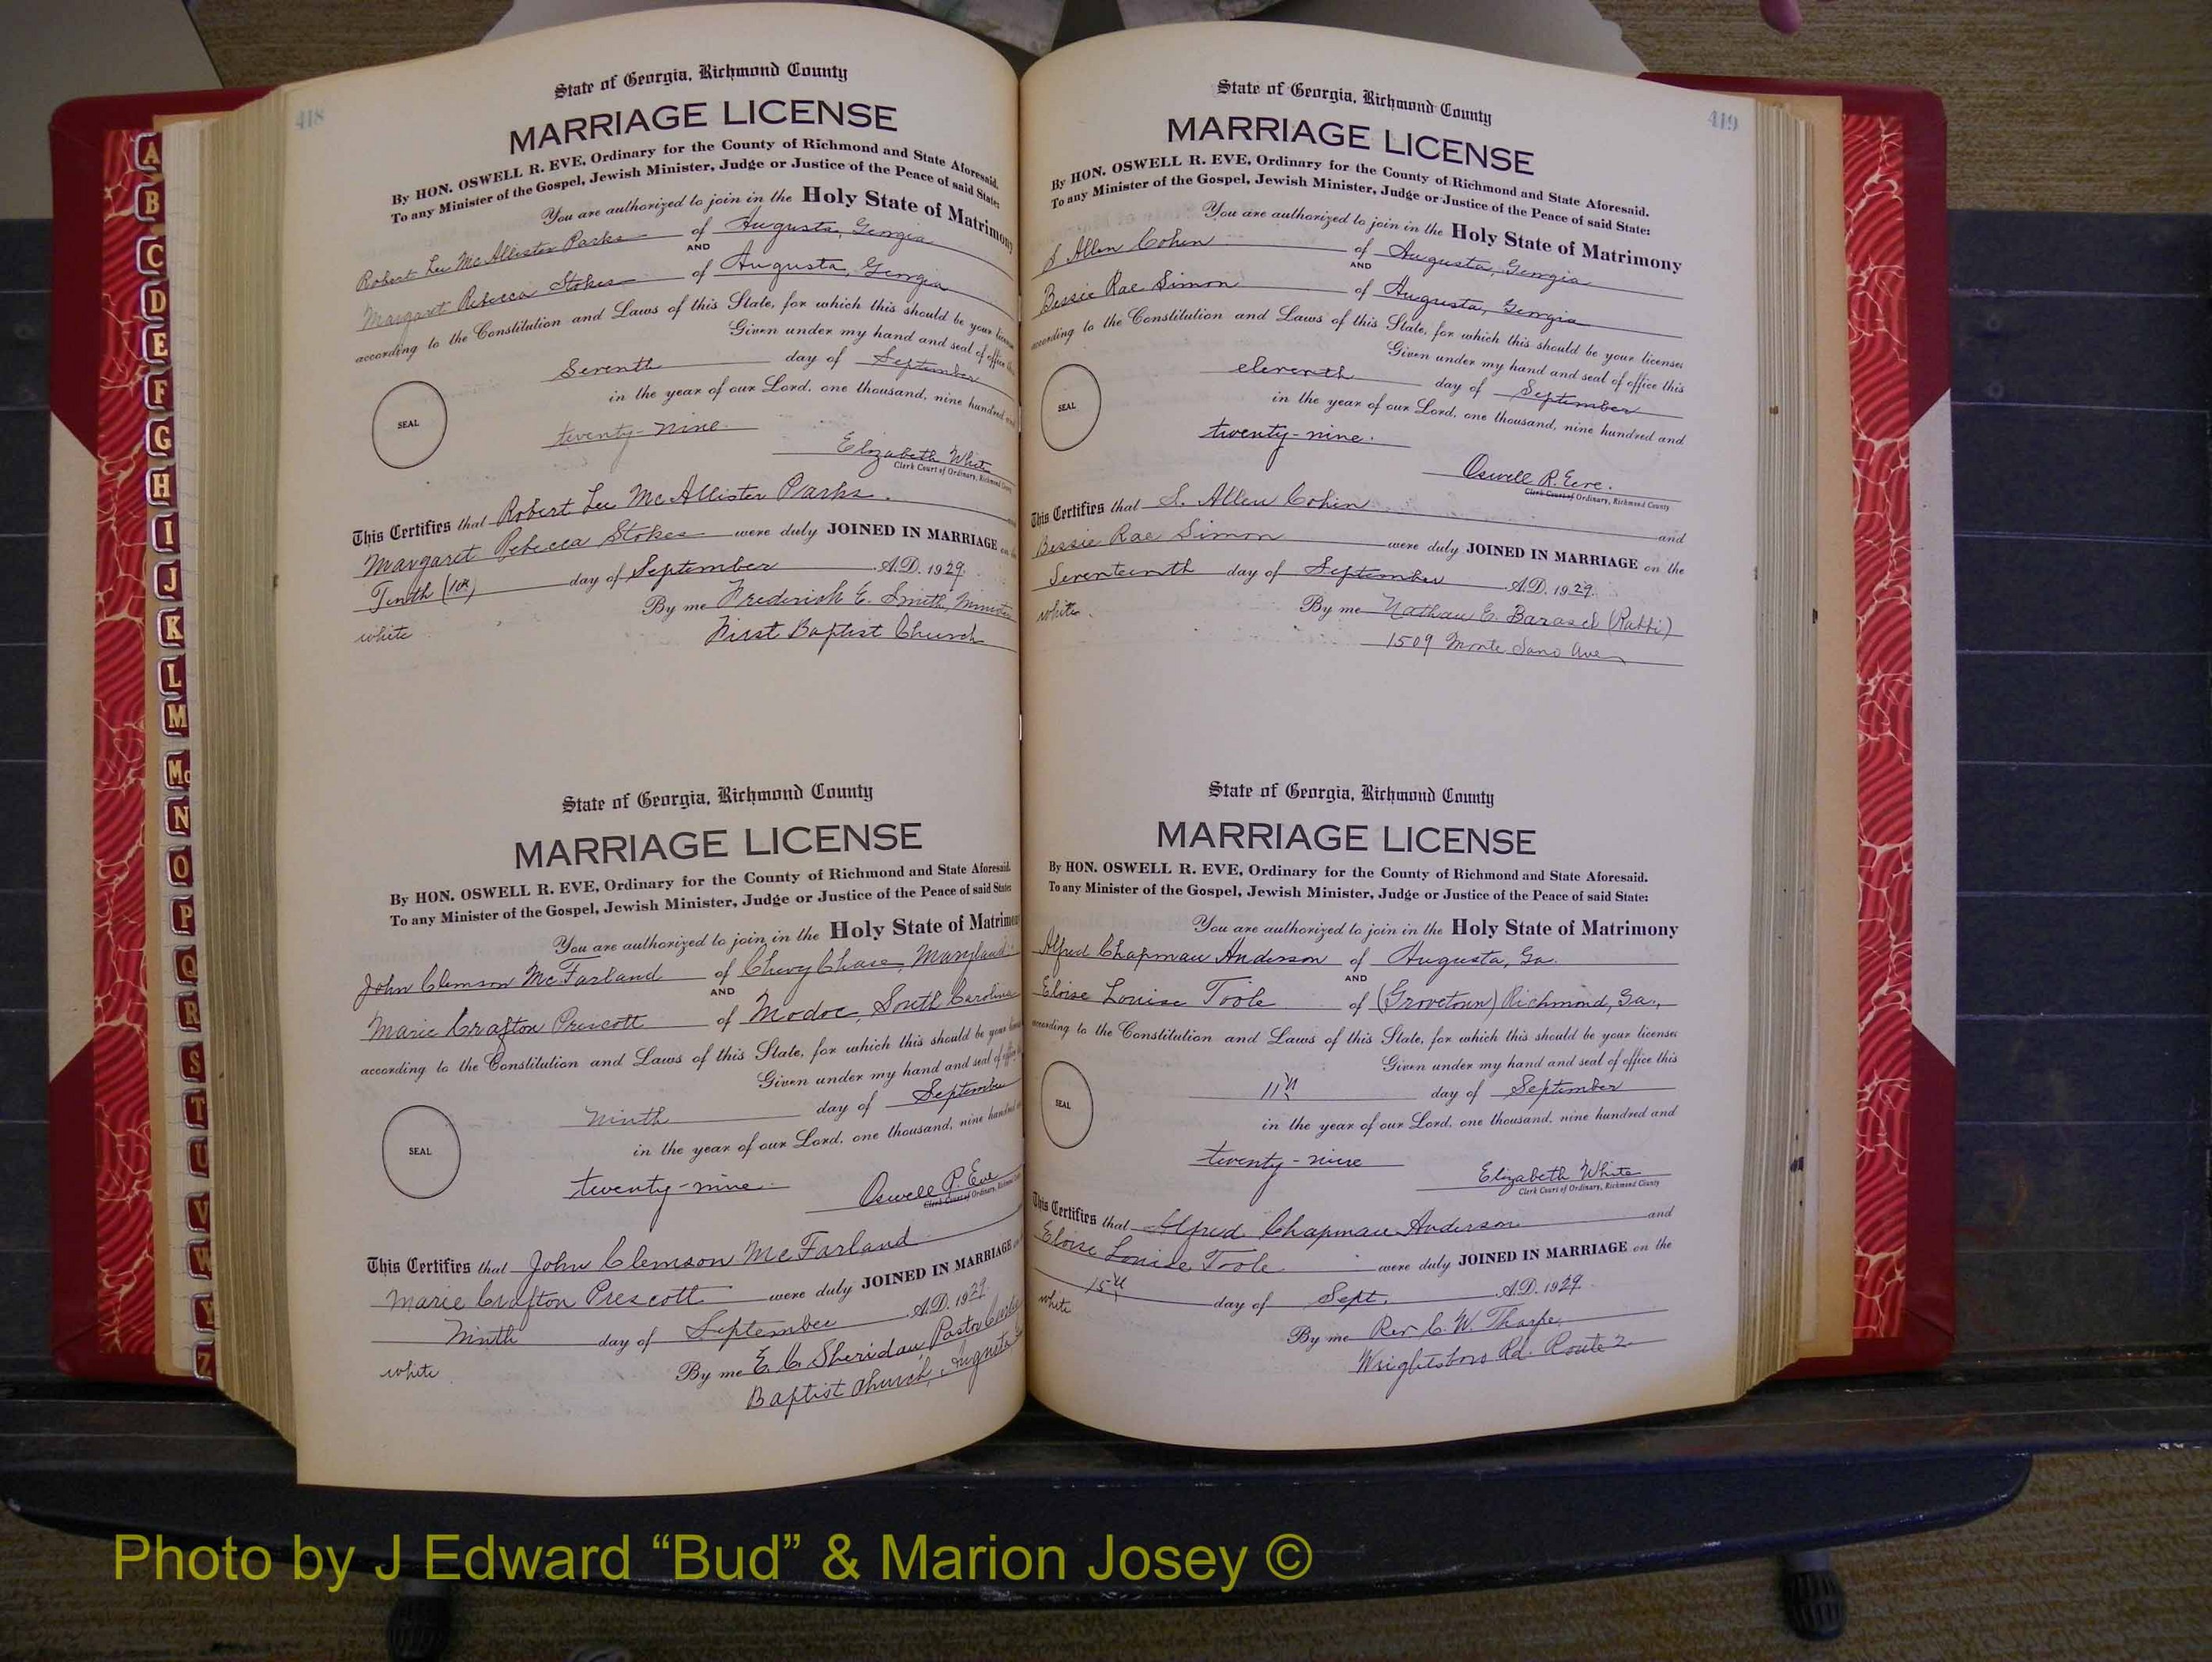 418
State of Georgia, Richmond County
MARRIAGE LICENSE
By HON. OSWELL R. EVE, Ordinary for the County of Richmond and State Aforesaid.
To any Minister of the Gospel, Jewish Minister, Judge or Justice of the Peace of said State:
You are authorized to join in the Holy State of Matrimony
Robert Lee McAllister Parks of Augusta, Georgia
AND
Margaret Rebecca Stokes of Augusta, Georgia
according to the Constitution and Laws of this State, for which this should be your
Given under my hand and seal of office
Seventh day of September
in the year of our Lord, one thousand, nine hundred
SEAL
twenty-nine
Elizabeth White
Clerk Court of Ordinary, Richmond
This Certifies that Robert Lee McAllister Parks.
Margaret Rebecca Stokes were duly JOINED IN MARRIAGE on
Tenth (10) day of September A.D. 1929.
By me Frederick E. Smith, Minister
white First Baptist Church
State of Georgia, Richmond County
MARRIAGE LICENSE
By HON. OSWELL R. EVE, Ordinary for the County of Richmond and State Aforesaid.
To any Minister of the Gospel, Jewish Minister, Judge or Justice of the Peace of said State:
You are authorized to join in the Holy State of
John Clemson McFarland of Chevy Chase, Maryland
AND
Marie Crafton Prescott of Modoc, South Carolina
according to the Constitution and Laws of this State, for which this should be your
Given under my hand and seal of
Ninth day of September
in the year of our Lord, one thousand, nine hundred
SEAL
twenty-nine.
Oswell R. Eve
Clerk Court of Ordinary, Richmond
This Certifies that John Clemson McFarland
Marie Crafton Prescott were duly JOINED IN MARRIAGE
Ninth day of September A.D. 1929.
white By me E. C. Sheridan, Pastor
Baptist Church, Augusta
419
State of Georgia, Richmond County
MARRIAGE LICENSE
By HON. OSWELL R. EVE, Ordinary for the County of Richmond and State Aforesaid.
To any Minister of the Gospel, Jewish Minister, Judge or Justice of the Peace of said State:
You are authorized to join in the Holy State of Matrimony
S Allen Cohen of Augusta, Georgia
AND
Bessie Rae Simon of Augusta, Georgia
according to the Constitution and Laws of this State, for which this should be your licenses
Given under my hand and seal of office this
eleventh day of September
in the year of our Lord, one thousand, nine hundred and
SEAL
twenty-nine.
Oswell R. Eve.
Clerk Court of Ordinary, Richmond County
This Certifies that S. Allen Cohen and
Bessie Rae Simon were duly JOINED IN MARRIAGE on the
Seventeenth day of September A.D. 1929.
white. By me Nathan E. Barasch (Rabbi)
1509 Monte Sano Ave
State of Georgia, Richmond County
MARRIAGE LICENSE
By HON. OSWELL R. EVE, Ordinary for the County of Richmond and State Aforesaid.
To any Minister of the Gospel, Jewish Minister, Judge or Justice of the Peace of said State:
You are authorized to join in the Holy State of Matrimony
Alfred Chapman Anderson of Augusta, Ga.
AND
Eloise Louise Toole of (Grovetown) Richmond, Ga.,
according to the Constitution and Laws of this State, for which this should be your licenses
Given under my hand and seal of office this
11th day of September
in the year of our Lord, one thousand, nine hundred and
SEAL
twenty-nine
Elizabeth White
Clerk Court of Ordinary, Richmond County
This Certifies that Alfred Chapman Anderson and
Eloise Louise Toole were duly JOINED IN MARRIAGE on the
15th day of Sept. A.D. 1929.
white
By me Rev C. W. Tharpe
Wrightsboro Rd. Route 2
A
B
C
D
E
F
G
H
I
J
K
L
M
Mc
N
O
P
Q
R
S
T
U
V
W
Y
Z
Photo by J Edward “Bud” & Marion Josey ©